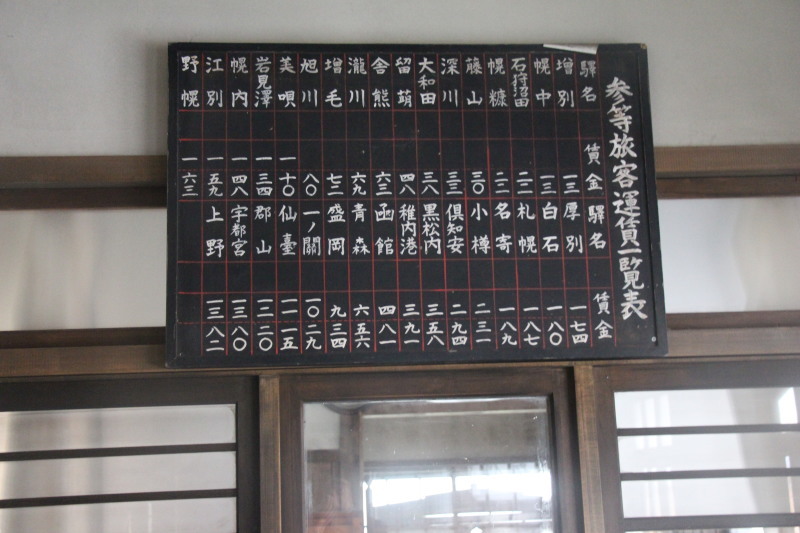 参等旅客運賃一覧表
驛名 賃金 驛名 賃金
増別 一三 厚別 一七四
幌中 一三 白石 一八〇
石狩沼田 二二 札幌 一八七
幌糠 二二 名寄 一八九
藤山 三〇 小樽 二三一
深川 三三 倶知安 二九四
大和田 三八 黒松内 三五八
留萠 四八 稚内港 三九一
舎熊 六三 函館 四八一
瀧川 六九 青森 六五六
増毛 七二 盛岡 九三四
旭川 八〇 一ノ關 一〇二九
美唄 一十〇 仙臺 一一一五
岩見澤 一三四 郡山 一二二〇
幌内 一四八 宇都宮 一三八〇
江別 一五九 上野 一三八二
野幌 一六三